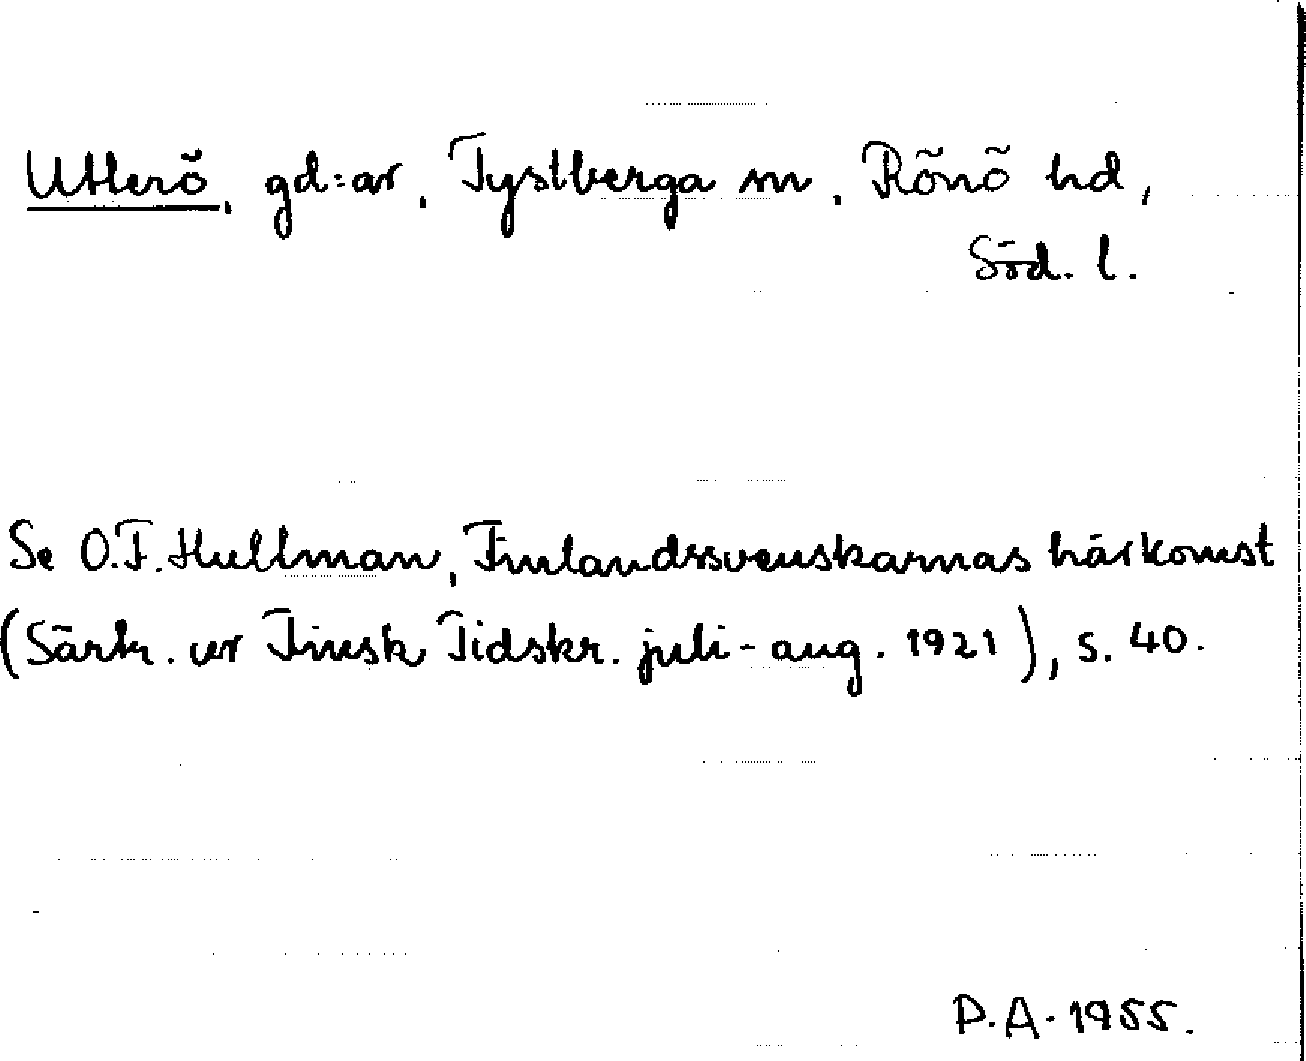 Utterö, gd:ar, Tystberga sn, Rönö hd,
Söd. l.
Se O.F. Hultman, Finlandssvenskarnas härkomst
(Särtr. ur Finsk Tidskr. juli-aug. 1921), s. 40.
P.A. 1955.